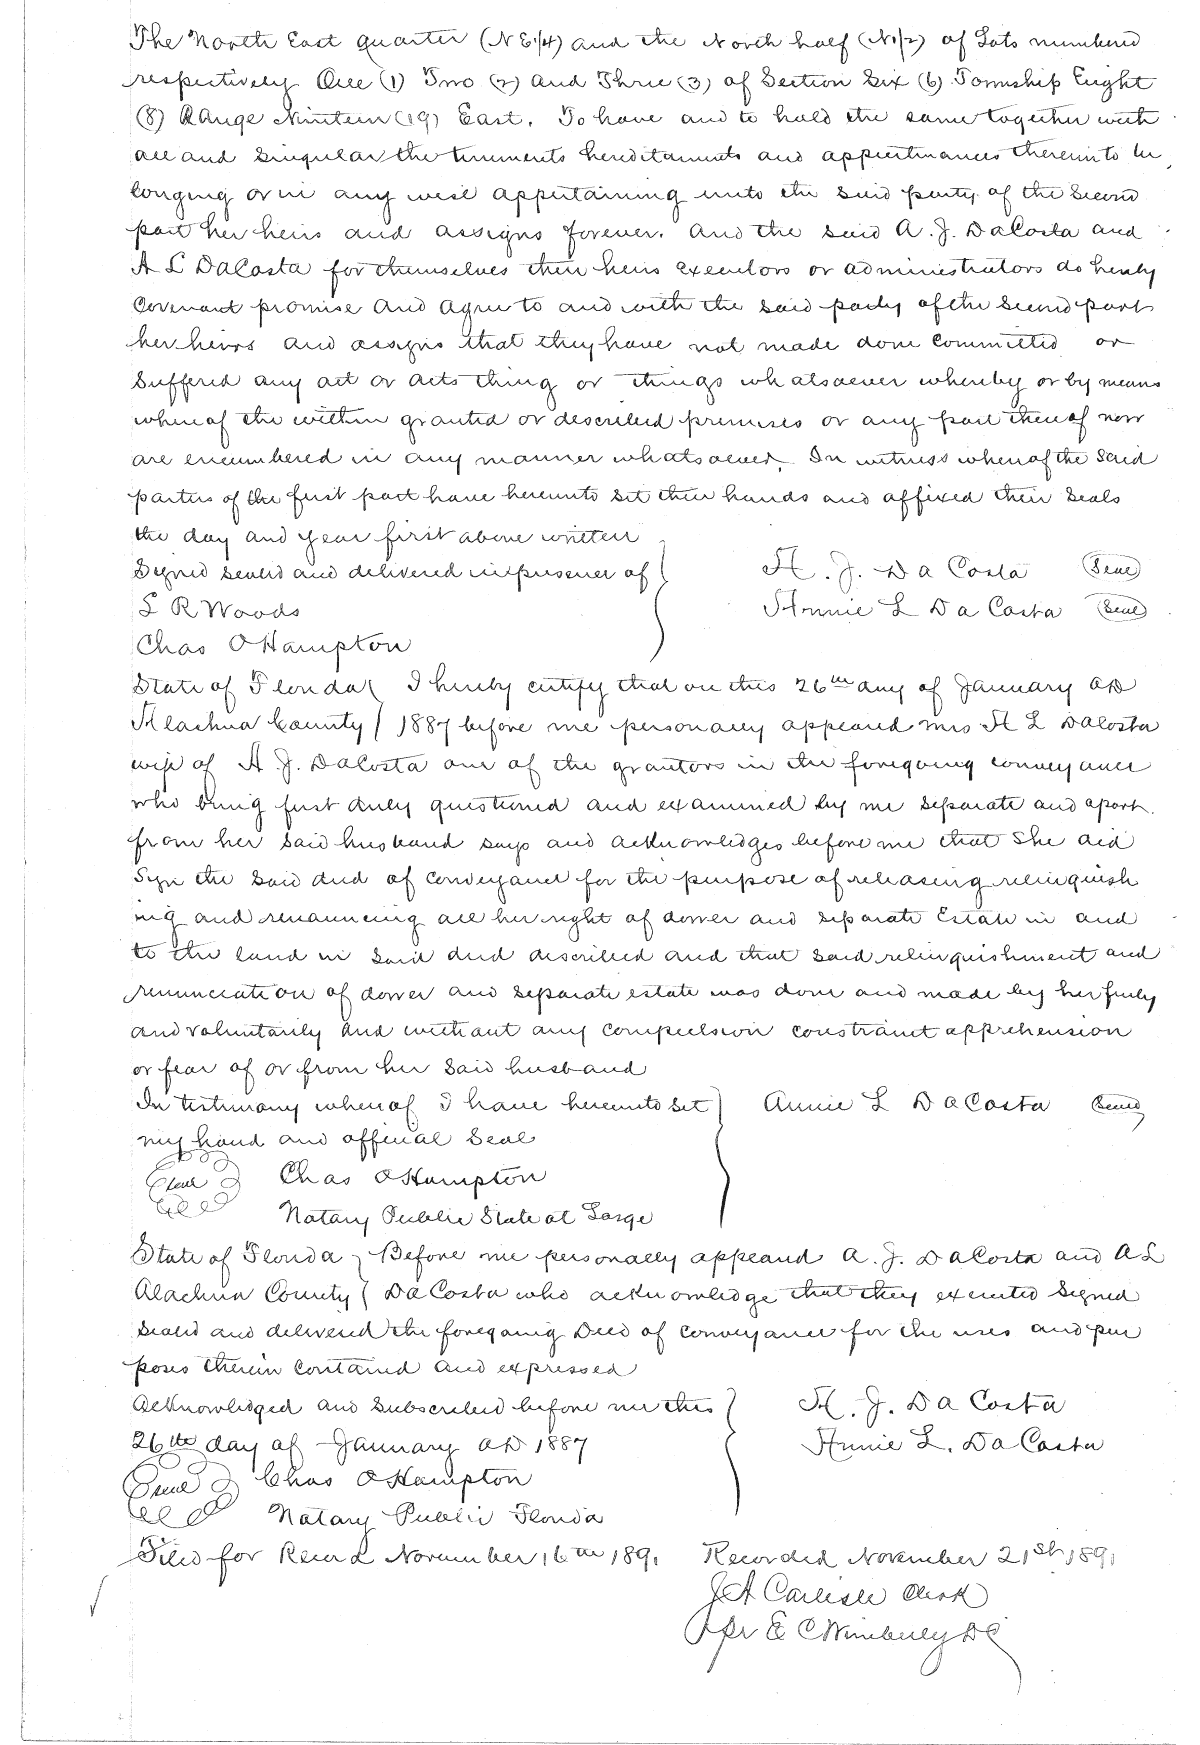 The North East quarter (NE1/4) and the North half (N1/2) of Lots numbered
respectively One (1) Two (2) and Three (3) of Section Six (6) Township Eight
(8) Range Nineteen (19) East. To have and to hold the same together with
all and singular the tenements hereditaments and appurtenances thereunto be
longing or in any wise appertaining unto the said party of the second
part her heirs and assigns forever. And the said A. J. DaCosta and
A L DaCosta for themselves their heirs executors or administrators do hereby
Covenant promise and agree to and with the said party of the second part
her heirs and assigns that they have not made done committed or
suffered any act or acts thing or things whatsoever whereby or by means
whereof the within granted or described premises or any part thereof now
are encumbered in any manner whatsoever. In witness whereof the said
parties of the first part have hereunto set their hands and affixed their seals
the day and year first above written
Signed sealed and delivered in presence of A. J. Da Costa (Seal)
S R Woods Annie L Da Costa (Seal)
Chas O Hampton
State of Florida I hereby certify that on this 26th day of January AD
Alachua County 1887 before me personally appeared Mrs A L DaCosta
wife of A. J. DaCosta one of the grantors in the foregoing conveyance
who being first duly questioned and examined by me separate and apart
from her said husband says and acknowledges before me that she did
sign the said deed of conveyance for the purpose of releasing relinquish
ing and renouncing all her right of dower and separate Estate in and
to the land in said deed described and that said relinquishment and
renunciation of dower and separate estate was done and made by her freely
and voluntarily and without any compulsion constraint apprehension
or fear of or from her said husband
In testimony whereof I have hereunto set Annie L DaCosta (Seal)
my hand and official Seal
Seal Chas O Hampton
Notary Public State at Large
State of Florida Before me personally appeared A. J. DaCosta and A L
Alachua County DaCosta who acknowledge that they executed signed
sealed and delivered the foregoing Deed of conveyance for the uses and pur
poses therein contained and expressed
Acknowledged and subscribed before me this A. J. Da Costa
26th day of January AD 1887 Annie L. DaCosta
Seal Chas O Hampton
Notary Public Florida
Filed for Record November 16th 1891 Recorded November 21st 1891
J A Carlisle Clerk
per E C Wimberly DC